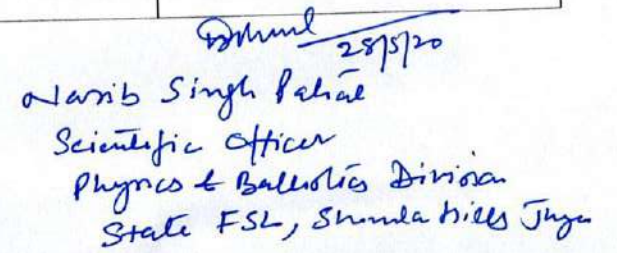 28/5/20
Nasib Singh
Scientific Officer
Physics & Ballistics Division
State FSL, Shimla Hills Junga